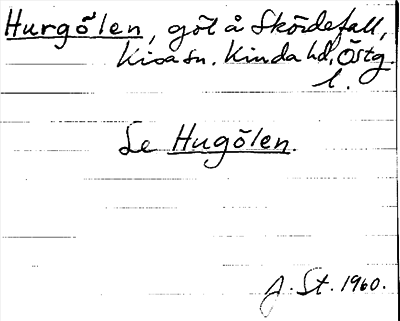 Hurgölen, göl å Skördefall,
Kisa sn. Kinda hd, Östg.
l.
Se Hugölen.
J. St. 1960.